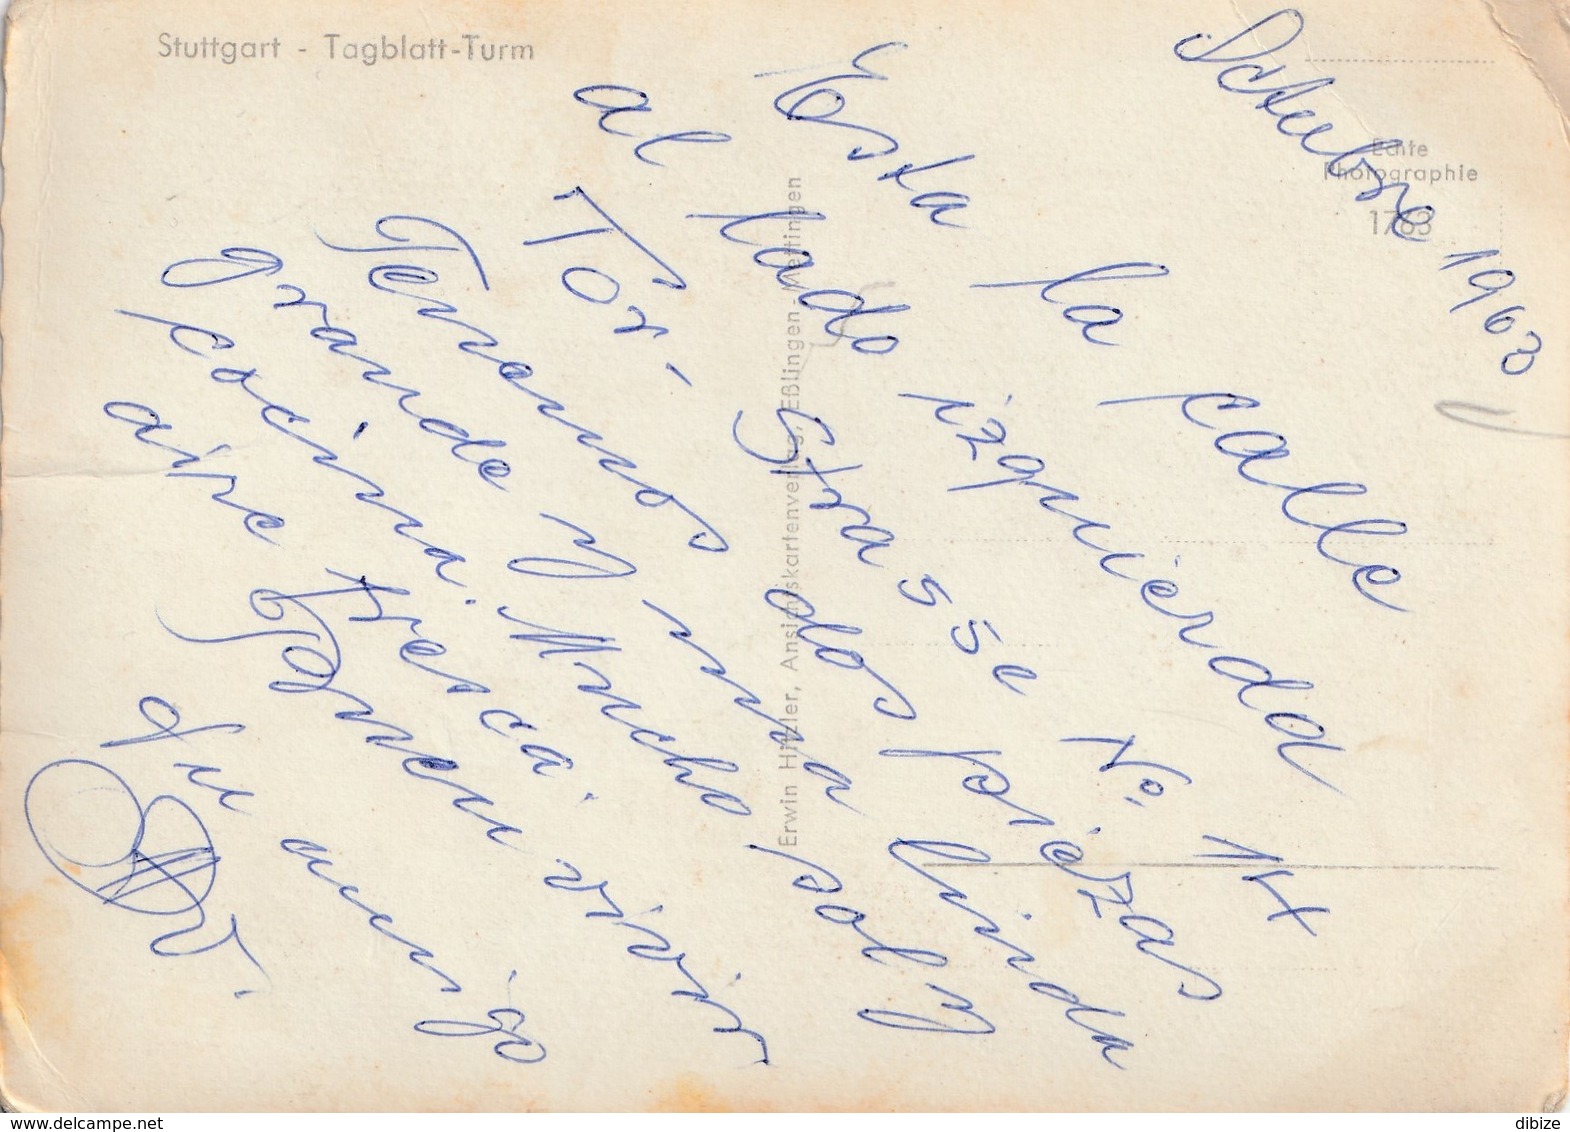 Stuttgart - Tagblatt-Turm
Echte
Photographie
1763
Erwin Hitzler, Ansichtskartenverlag, Eßlingen-Mettingen
Octubre 1963
Esta la calle
al lado izquierda
Tor- Strasse No. 14
Tenemos dos piezas
grande y una linda
cocina. Mucho sol y
aire fresca.
vivir
Tu amigo
dibize